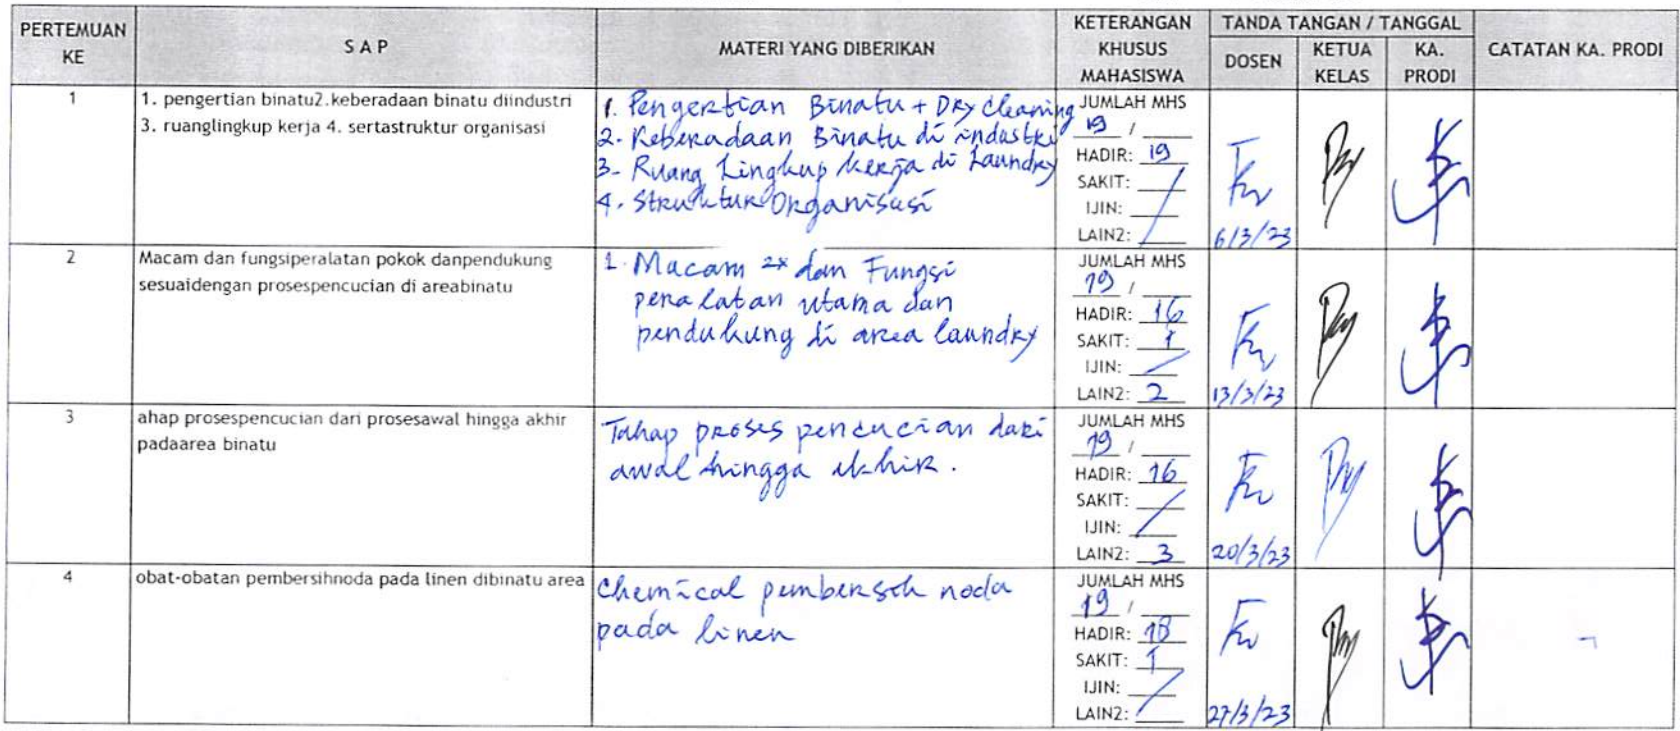 PERTEMUAN KE
S A P
MATERI YANG DIBERIKAN
KETERANGAN KHUSUS MAHASISWA
TANDA TANGAN / TANGGAL
DOSEN
KETUA KELAS
KA. PRODI
CATATAN KA. PRODI
1
1. pengertian binatu2.keberadaan binatu diindustri
3. ruanglingkup kerja 4. sertastruktur organisasi
1. Pengertian Binatu + Dry Cleaning
2. Keberadaan Binatu di industri
3. Ruang Lingkup kerja di Laundry
4. Struktur Organisasi
JUMLAH MHS
19 / ___
HADIR: 19
SAKIT:
IJIN:
LAIN2:
6/3/23
2
Macam dan fungsiperalatan pokok danpendukung
sesuaidengan prosespencucian di areabinatu
1. Macam 2x dan Fungsi
peralatan utama dan
pendukung di area laundry
JUMLAH MHS
19 / ___
HADIR: 16
SAKIT: 1
IJIN:
LAIN2: 2
13/3/23
3
ahap prosespencucian dari prosesawal hingga akhir
padaarea binatu
Tahap proses pencucian dari
awal hingga akhir.
JUMLAH MHS
19 / ___
HADIR: 16
SAKIT:
IJIN:
LAIN2: 3
20/3/23
4
obat-obatan pembersihnoda pada linen dibinatu area
Chemical pembersih noda
pada linen
JUMLAH MHS
19 / ___
HADIR: 18
SAKIT: 1
IJIN:
LAIN2:
27/3/23